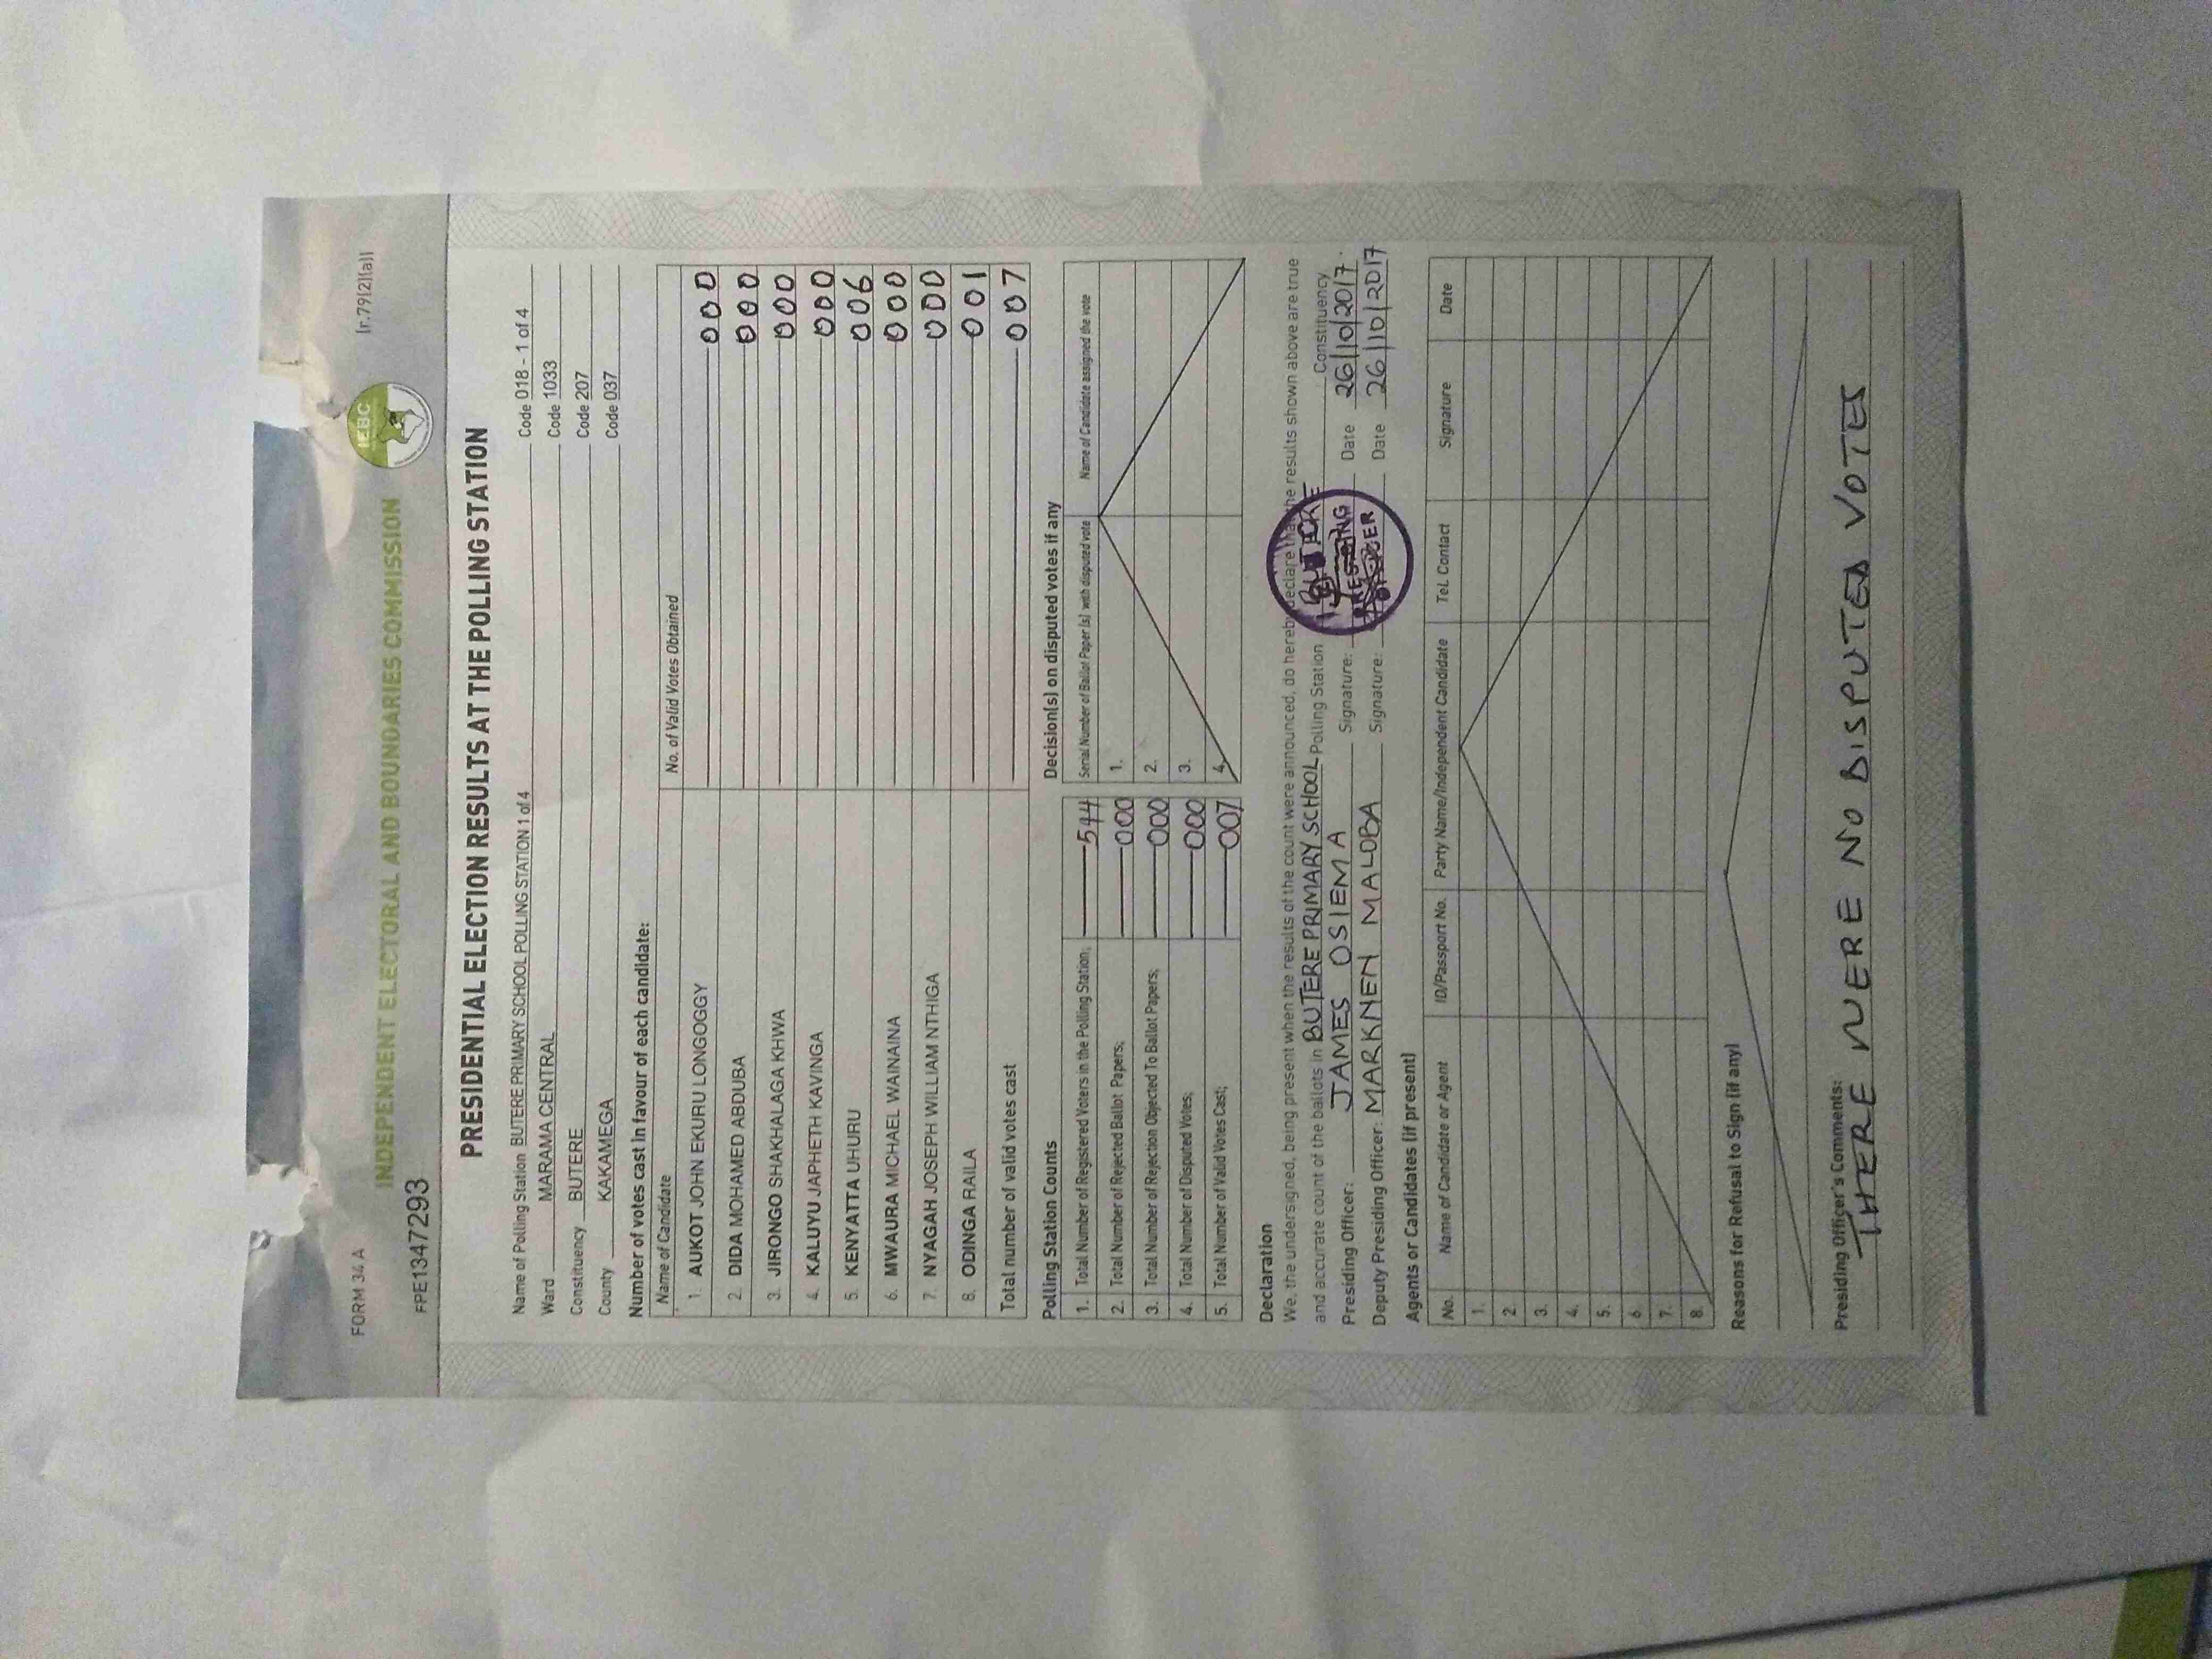 FORM 34 A
[r.79(2)(a)]
INDEPENDENT ELECTORAL AND BOUNDARIES COMMISSION
IEBC
FPE1347293
PRESIDENTIAL ELECTION RESULTS AT THE POLLING STATION
Name of Polling Station BUTERE PRIMARY SCHOOL POLLING STATION 1 of 4 Code 018 - 1 of 4
Ward MARAMA CENTRAL Code 1033
Constituency BUTERE Code 207
County KAKAMEGA Code 037
Number of votes cast in favour of each candidate:
Name of Candidate No. of Valid Votes Obtained
1. AUKOT JOHN EKURU LONGOGGY 000
2. DIDA MOHAMED ABDUBA 000
3. JIRONGO SHAKHALAGA KHWA 000
4. KALUYU JAPHETH KAVINGA 000
5. KENYATTA UHURU 006
6. MWAURA MICHAEL WAINAINA 000
7. NYAGAH JOSEPH WILLIAM NTHIGA 000
8. ODINGA RAILA 001
Total number of valid votes cast 007
Polling Station Counts
1. Total Number of Registered Voters in the Polling Station; 544
2. Total Number of Rejected Ballot Papers; 000
3. Total Number of Rejection Objected To Ballot Papers; 000
4. Total Number of Disputed Votes; 000
5. Total Number of Valid Votes Cast; 007
Decision(s) on disputed votes if any
Serial Number of Ballot Paper (s) with disputed vote Name of Candidate assigned the vote
1.
2.
3.
4.
Declaration
We, the undersigned, being present when the results of the count were announced, do hereby declare that the results shown above are true
and accurate count of the ballots in BUTERE PRIMARY SCHOOL Polling Station BUTERE Constituency
Presiding Officer: JAMES OSIEMA Signature: Date 26/10/2017.
Deputy Presiding Officer: MARKNEN MALOBA Signature: Date 26/10/2017
PRESIDING OFFICER
Agents or Candidates (if present)
No. Name of Candidate or Agent ID/Passport No. Party Name/Independent Candidate Tel. Contact Signature Date
1.
2.
3.
4.
5.
6.
7.
8.
Reasons for Refusal to Sign (if any)
Presiding Officer's Comments:
THERE WERE NO DISPUTED VOTES